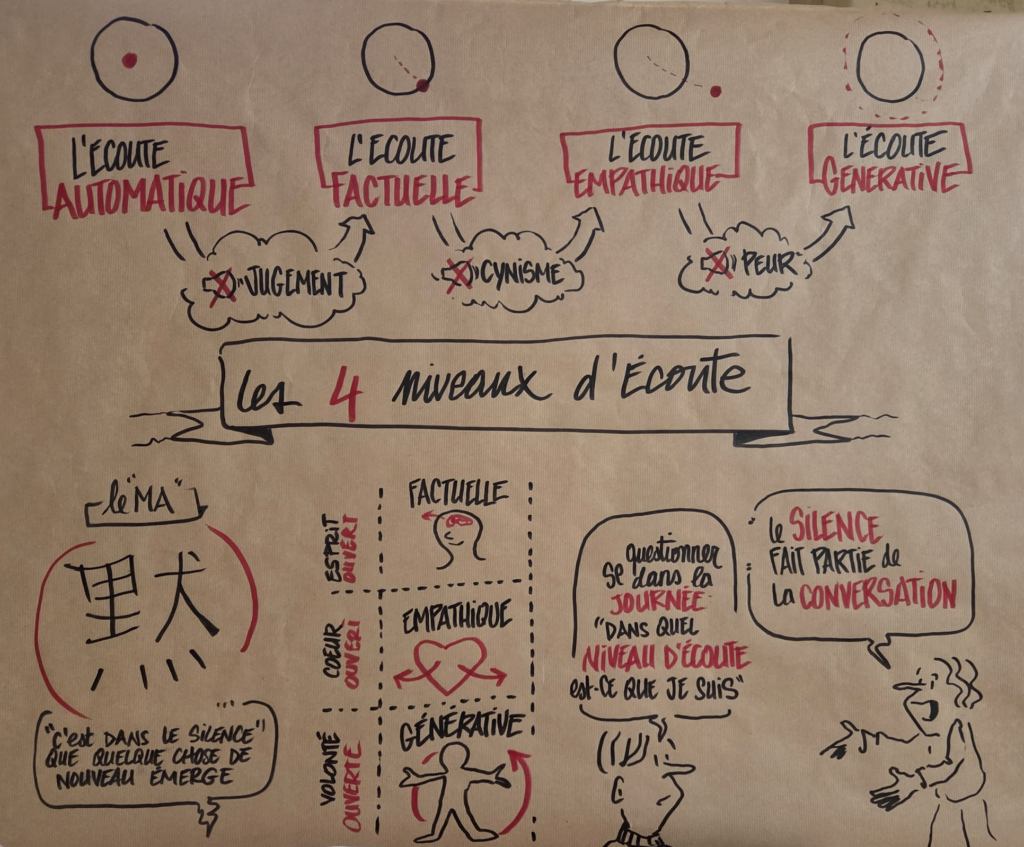 L'ECOUTE
AUTOMATIQUE
L'ECOUTE
FACTUELLE
L'ECOUTE
EMPATHIQUE
L'ÉCOUTE
GENERATIVE
JUGEMENT
CYNISME
PEUR
Les 4 niveaux d'Écoute
le "MA"
黙
"C'est DANS LE SILENCE
QUE QUELQUE CHOSE DE
NOUVEAU ÉMERGE
ESPRIT
OUVERT
FACTUELLE
COEUR
OUVERT
EMPATHIQUE
VOLONTÉ
OUVERTE
GÉNÉRATIVE
questionner
se dans la
JOURNÉE
"DANS QUEL
NIVEAU D'ÉCOUTE
est-CE QUE JE SUIS"
Le SILENCE
FAIT PARTIE de
La CONVERSATION